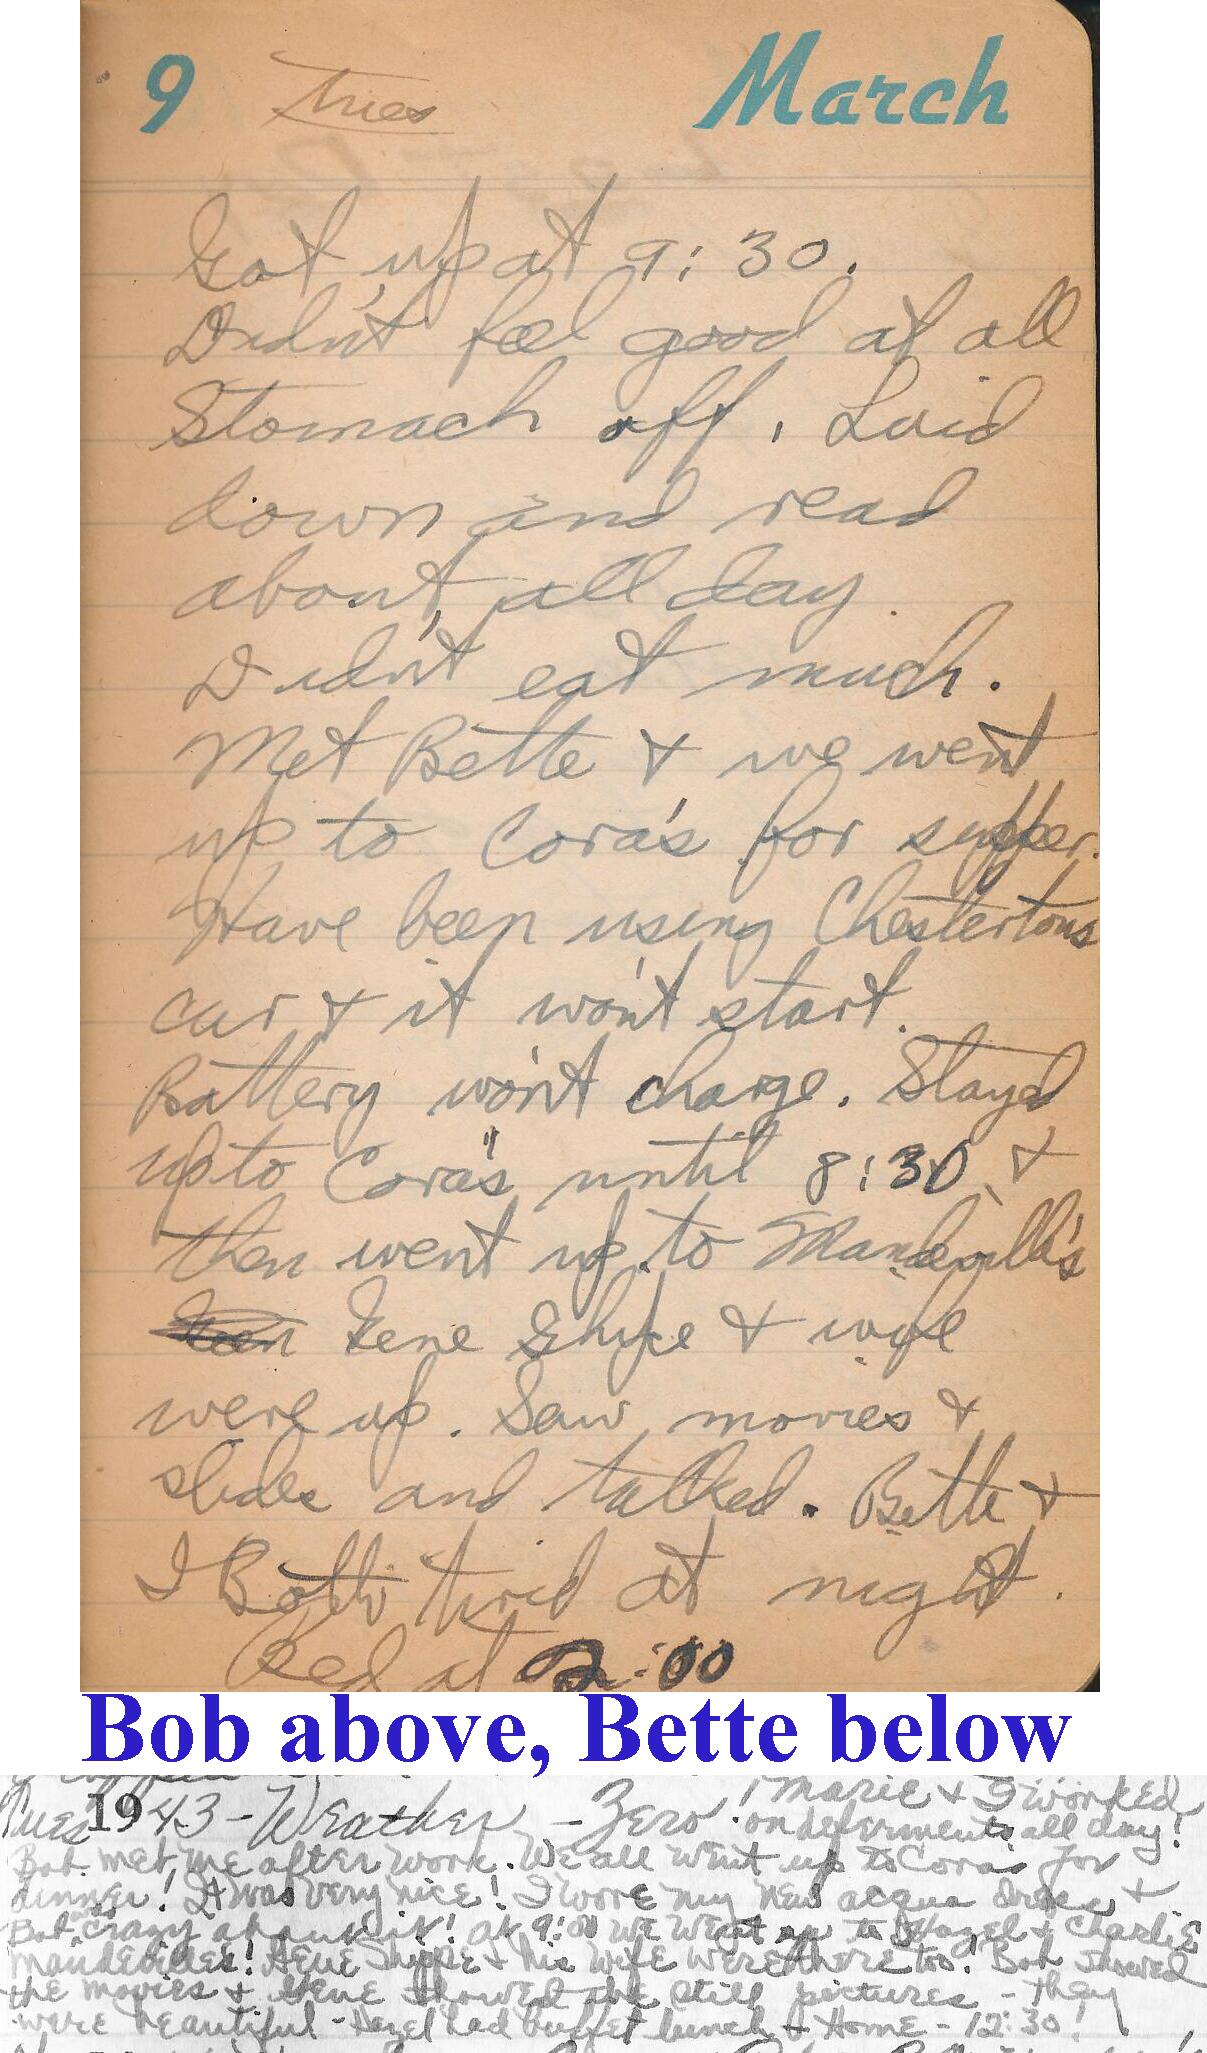 9 Tues March
Got up at 9:30.
Didn't feel good at all
Stomach off. Laid
down and read
about all day.
Didn't eat much.
Met Bette & we went
up to Cora's for supper.
Have been using Chestertons
car & it won't start.
Battery won't charge. Stayed
up to Cora's until 8:30 &
then went up to Mandeville's
Gene Shipe & wife
were up. Saw movies &
slides and talked. Bette &
I Both tired at night.
Bed at 2:00
Bob above, Bette below
Tues 1943 - Weather - Zero! Marie & I worked
on deferments all day!
Bob met me after work. We all went up to Coras for
dinner! It was very nice! I wore my new acqua dress &
Bob was crazy about it! At 9:00 we went up to Hazel & Charlie
Mandevilles! Gene Shippe & his wife were there too! Bob showed
the movies & Gene showed the still pictures - they
were beautiful - Hazel had buffet lunch & Home - 12:30!